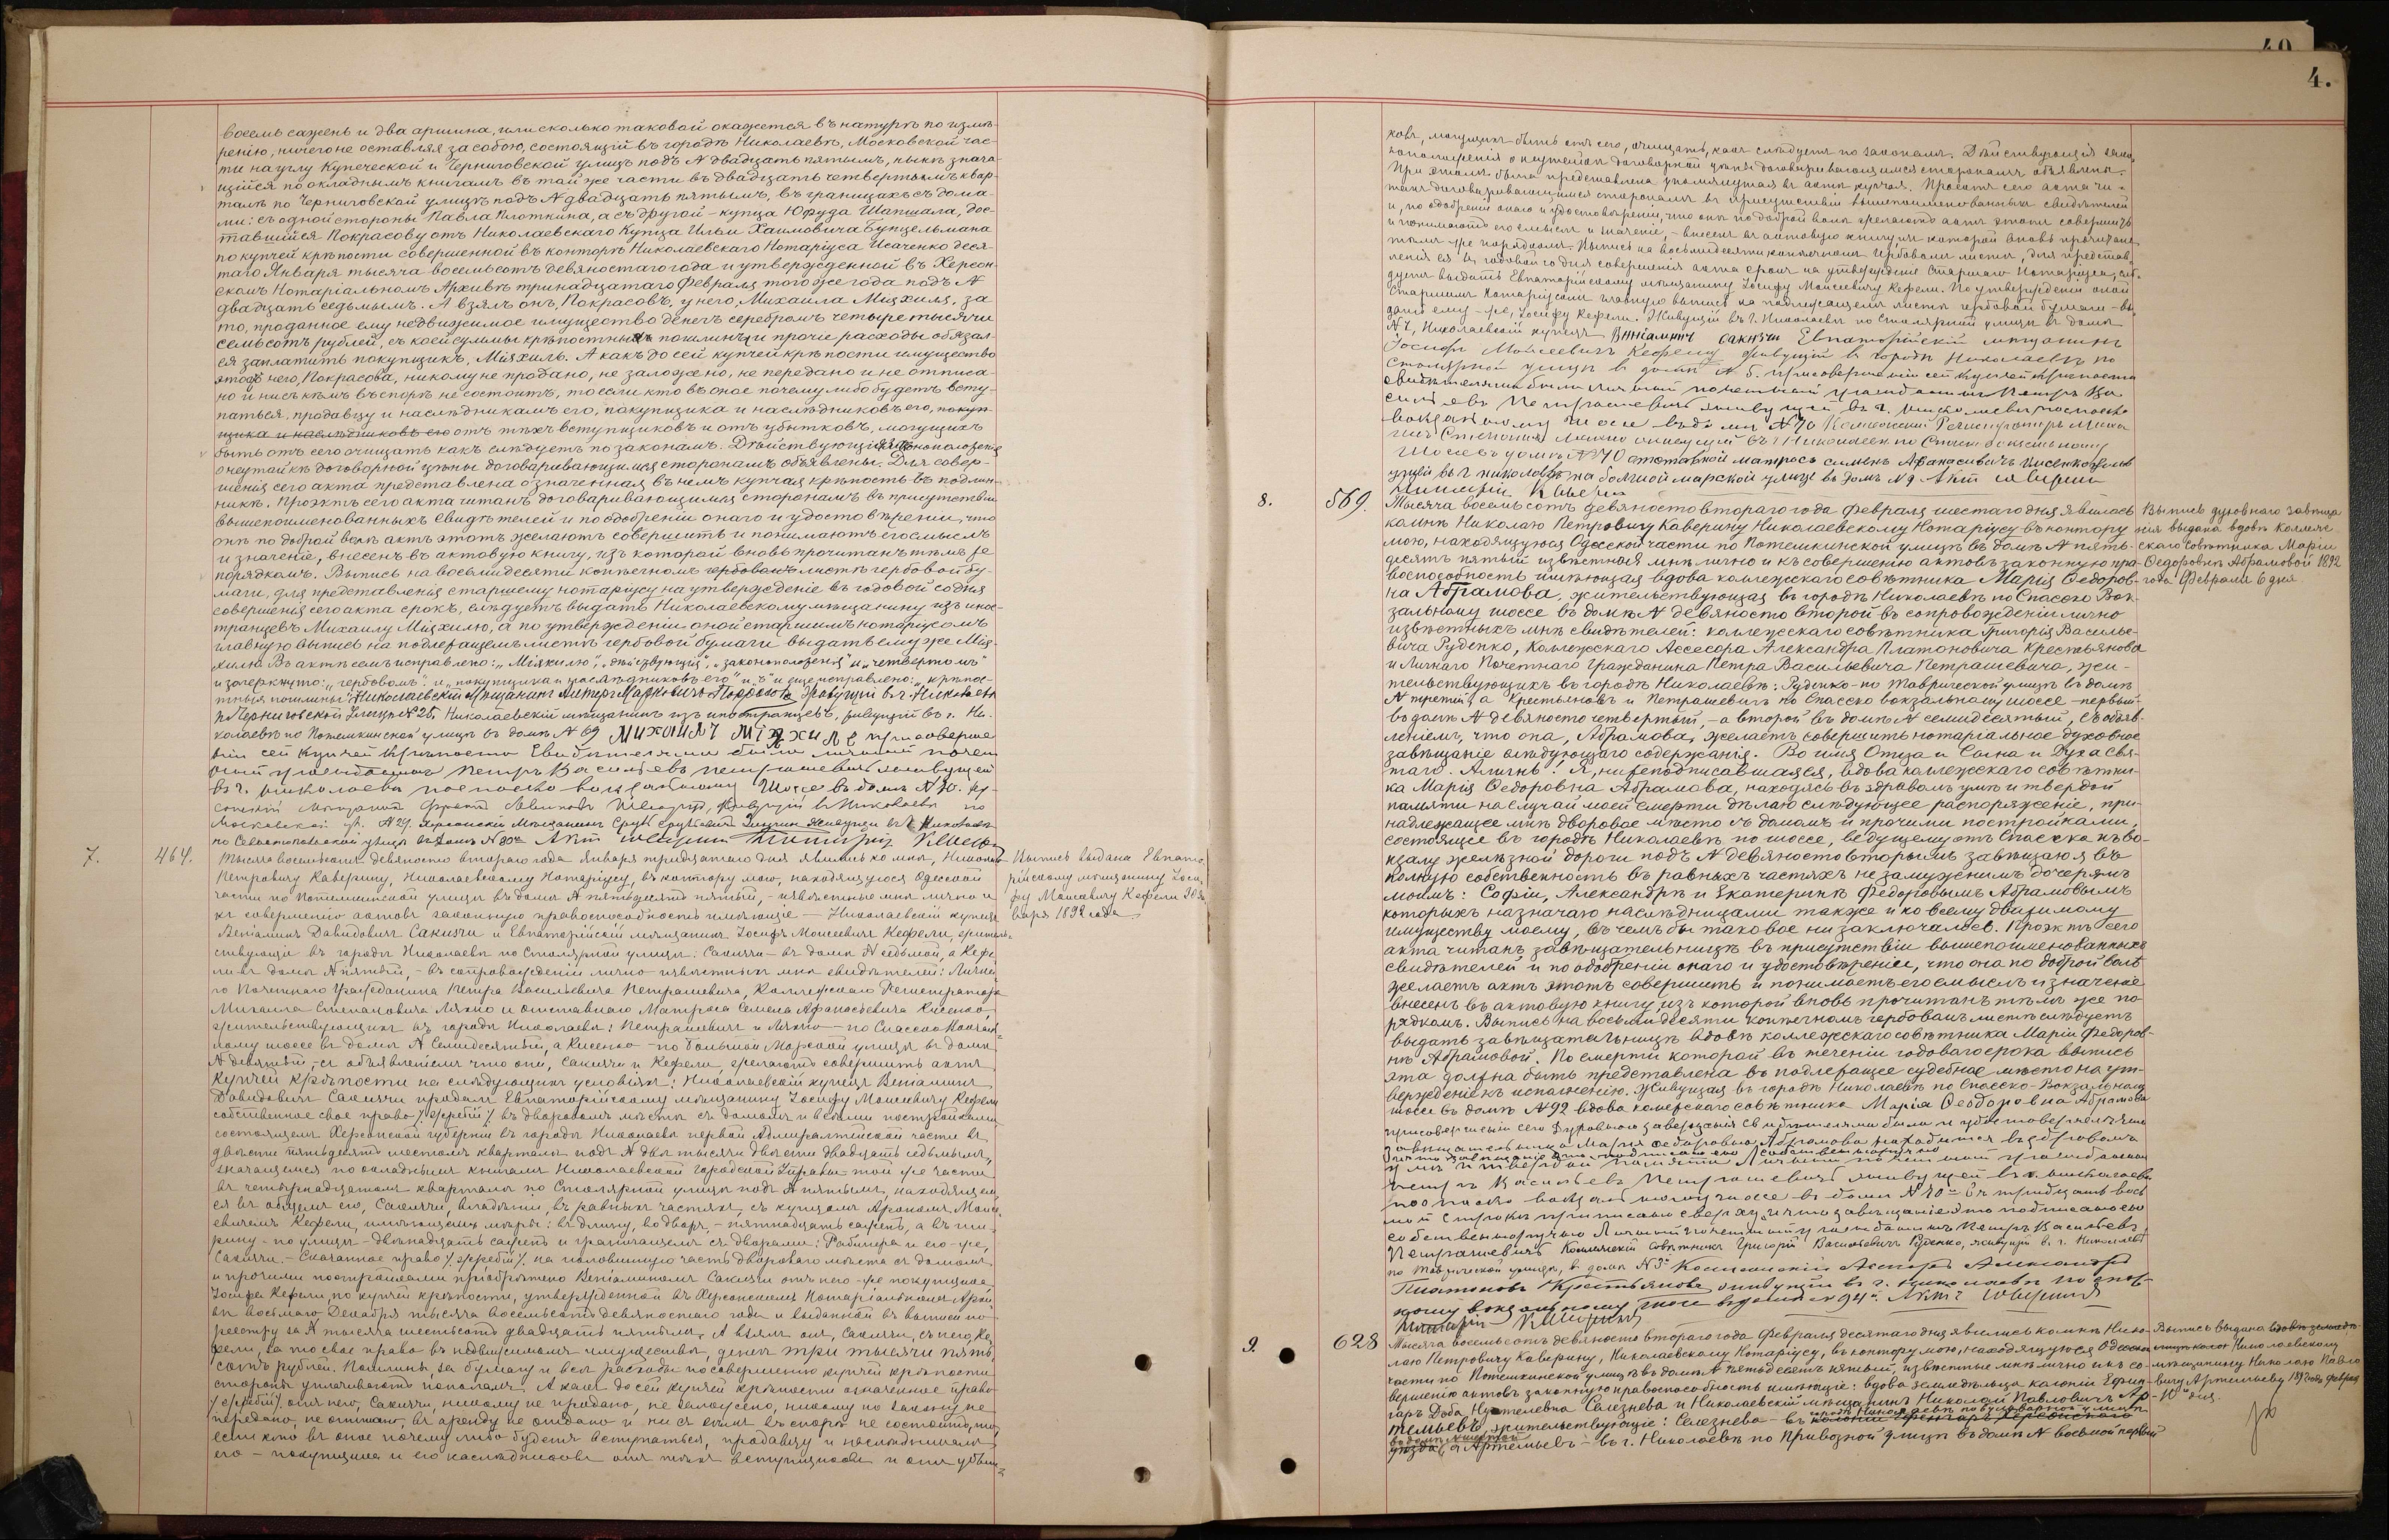 восемь сажень и два аршина, или сколько таковой окажется въ натурѣ по измѣ-
рѣнію, ничего не оставляя за собою, состоящій въ городѣ Николаевѣ, Московской час-
ти на углу Купеческой и Черниговской улицъ подъ N двадцать пятымъ, нынѣ знача-
щійся по окладнымъ книгамъ въ той же части въ двадцать четвертомъ квар-
талѣ по Черниговской улицѣ подъ N двадцать пятымъ, въ границахъ съ дома-
ми: съ одной стороны Павла Плоткина, а съ другой - купца Юфуда Шапшала, дос-
тавшійся Покрасову отъ Николаевскаго Купца Ильи Хаимовича Бунцельмана
по купчей крѣпости совершенной въ конторѣ Николаевскаго Нотаріуса Исаченко деся-
таго Января тысяча восемьсотъ девяностаго года и утвержденной въ Херсон-
скомъ Нотаріальномъ Архивѣ тринадцатаго Февраля того же года подъ N
двадцать седьмымъ. А взялъ онъ, Покрасовъ, у него, Михаила Міяхиля, за
то, проданное ему недвижимое имущество денегъ серебромъ четыре тысячи
семьсотъ рублей, съ коей суммы крѣпостныя пошлины и прочіе расходы обязал-
ся заплатить покупщикъ, Міяхиль. А какъ до сей купчей крѣпости имущество
это отъ него, Покрасова, никому не продано, не заложено, не передано и не отписа-
но и ни съ кѣмъ въ спорѣ не состоитъ, то если кто въ оное почему либо будетъ всту-
паться, продавцу и наслѣдникамъ его, покупщика и наслѣдниковъ его, покуп-
щика и наслѣдниковъ его отъ тѣхъ вступщиковъ и отъ убытковъ, могущихъ
быть отъ сего очищать какъ слѣдуетъ по законамъ. Дѣйствующія законоположенія
о неутайкѣ договорной цѣны договаривающимся сторонамъ объявлены. Для совер-
шенія сего акта представлена означенная въ немъ купчая крѣпость въ подлин-
никѣ. Проэктъ сего акта читанъ договаривающимся сторонамъ въ присутствіи
вышепоименованныхъ свидѣтелей и по одобреніи онаго и удостовѣреніи, что
онѣ по доброй волѣ актъ этотъ желаютъ совершить и понимаютъ его смыслъ
и значеніе, внесенъ въ актовую книгу, изъ которой вновь прочитанъ тѣмъ же
порядкомъ. Выпись на восьмидесяти копѣечномъ гербовомъ листѣ гербовой бу-
маги, для представленія старшему нотаріусу на утвержденіе въ годовой со дня
совершенія сего акта срокъ, слѣдуетъ выдать Николаевскому мѣщанину изъ инос-
транцевъ Михаилу Міяхилю, а по утвержденіи оной старшимъ нотаріусомъ
главную выпись на подлежащемъ листѣ гербовой бумаги выдать ему же Мія-
хилю. Въ актѣ семъ исправлено: „Міяхилю", „дѣйствующія", „законоположенія" и „четвертомъ"
и зачеркнуто: „гербовомъ" и „покупщика и наслѣдниковъ его" и „ъ" и еще исправлено: „крѣпос-
тныя пошлины". Николаевскій Мѣщанинъ Петръ Марковичъ Покрасовъ живущій въ г. Николаевѣ
по Черниговской Улицѣ N 25, Николаевскій мѣщанинъ изъ иностранцевъ, живущій въ г. Ни-
колаевѣ по Потемкинской улицѣ въ домѣ N 69 Михаилъ Міяхиле при соверше-
ніи сей купчей крѣпости Свидѣтелями были личный почет-
ный гражданинъ Петръ Васильевъ Петрашевичъ живущій
въ г. Николаевѣ по Спаско вокзальному шоссе въ домѣ N 70.
Московской ул. N 29. Херсонскій Мѣщанинъ живущій въ г. Николаевѣ
по Севастопольской улицѣ въ домѣ N 80й Актъ совершилъ Нотаріусъ
7. 464. Тысяча восемьсотъ девяносто втораго года января тридцатаго дня явились ко мнѣ, Николаю
Петровичу Каверину, Николаевскому Нотаріусу, въ контору мою, находящуюся Одесской
части по Потемкинской улицѣ въ домѣ N пятьдесятъ пятый, - извѣстные мнѣ лично и
къ совершенію актовъ законную правоспособность имѣющіе - Николаевскій купецъ
Веніаминъ Давидовичъ Сакизчи и Евпаторійскій мѣщанинъ Іосифъ Моисеевичъ Кефели, житель-
ствующіе въ городѣ Николаевѣ по Столярной улицѣ: Сакизчи - въ домѣ N седьмой, а Кефе-
ли въ домѣ N пятый, - въ сопровожденіи лично извѣстныхъ мнѣ свидѣтелей: Лично-
го Почетнаго Гражданина Петра Васильевича Петрашевича, Коллежскаго Регистратора
Михаила Степановича Ляхно и отставнаго Матроса Семена Афанасьевича Кисенко,
жительствующихъ въ городѣ Николаевѣ: Петрашевичъ и Ляхно - по Спасско Вокзаль-
ному шоссе въ домѣ N Семидесятый, а Кисенко - по большой Морской улицѣ въ домѣ
N девятый, - съ объявленіемъ что они, Сакизчи и Кефели, желаютъ совершить актъ
купчей крѣпости на слѣдующихъ условіяхъ: Николаевскій купецъ Веніаминъ
Давидовичъ Сакизчи продалъ Евпаторійскому мѣщанину Іосифу Моисеевичу Кефели
собственное свое право /жребій/ въ дворовомъ мѣстѣ съ домомъ и всѣми постройками
состоящемъ Херсонской губерніи въ городѣ Николаевѣ первой Адмиралтейской части въ
двѣсти пятьдесятъ шестомъ кварталѣ подъ N два тысячи двѣсти двадцать седьмымъ,
значащемся по окладнымъ книгамъ Николаевской городской Управы - той же части
въ четырнадцатомъ кварталѣ по Столярной улицѣ подъ N пятымъ, находящем-
ся въ общемъ его, Сакизчи, владѣніи, въ равныхъ частяхъ, съ купцомъ Арономъ Моисе-
евичемъ Кефели, имѣющемъ мѣры: въ длину, во дворъ, - пятнадцать сажень, а въ ши-
рину - по улицѣ - двѣнадцать сажень и граничащемъ съ дворами: Рабинера и его - же,
Сакизчи. - Сказанное право /жребій/ на половинную часть дворового мѣста съ домомъ
и прочими постройками пріобрѣтено Веніаминомъ Сакизчи отъ него - же покупщика
Іосифа Кефели, по купчей крѣпости, утвержденной въ Херсонскомъ Нотаріальномъ Архи-
вѣ восьмаго Декабря тысяча восемьсотъ девяностаго года и выданной въ выписи по
реестру за N тысяча шестьсотъ двадцать пятымъ. А взялъ онъ, Сакизчи, съ него, Ке-
фели, за то свое право въ недвижимомъ имуществѣ, денегъ три тысячи пять-
сотъ рублей. Пошлины, за бумагу и всѣ расходы по совершенію купчей крѣпости
стороны уплачиваютъ пополамъ. А какъ до сей купчей крѣпости означенное право
/жребій/ отъ него, Сакизчи, никому не продано, не заложено, никому по закону не
передано, не описано, въ аренду не отдано и ни съ кѣмъ въ спорѣ не состоитъ, то
если кто въ оное почему либо будетъ вступаться, продавцу и наслѣдникамъ
его - покупщика и его наслѣдниковъ отъ тѣхъ вступщиковъ и отъ убыт-
Выпись выдана Евпато-
рійскому мѣщанину Іоси-
фу Моисеевичу Кефели 30 Ян-
варя 1892 года
4.
ковъ, могущихъ быть отъ сего, очищать, какъ слѣдуетъ по законамъ. Дѣйствующія зако-
ноположенія о неутайкѣ договорной цѣны договаривающимся сторонамъ объявлены.
При этомъ была представлена упомянутая въ актѣ купчая. Проэктъ сего акта чи-
танъ договаривающимся сторонамъ въ присутствіи вышепоименованныхъ свидѣтелей
и, по одобреніи онаго и удостовѣреніи, что онѣ по доброй волѣ желаютъ актъ этотъ совершить
и понимаютъ его смыслъ и значеніе, - внесенъ въ актовую книгу, изъ которой вновь прочитанъ
тѣмъ - же порядкомъ. Выпись на восьмидесяти копѣечномъ гербовомъ листѣ, для представ-
ленія ея въ годовой со дня совершенія акта срокъ на утвержденіе Старшаго Нотаріуса, слѣ-
дуетъ выдать Евпаторійскому мѣщанину Іосифу Моисеевичу Кефели. По утвержденіи оной
Старшимъ Нотаріусомъ главную выпись на подлежащемъ листѣ гербовой бумаги - вы-
дать ему - же, Іосифу Кефели. Живущій въ г. Николаевѣ по Столярной улицѣ въ домѣ
N 7, Николаевскій купецъ Виніаминъ Сакизчи Евпаторійскій мѣщанинъ
Іосифъ Мойсеевичъ Кефели живущій въ городѣ Николаевѣ по
Столярной улицѣ въ домѣ N 5. при совершеніи сей купчей крѣпости
свидѣтелями были личный почетный гражданинъ Петръ Ва-
сильевъ Петрашевичъ живущій въ г. Николаевѣ по спаско
вокзальному шоссе въ домѣ N 70 Колежскій Регистраторъ Миха-
илъ Степановъ Ляхно живущій въ г Николаевѣ по Спаско вокзальному
Шоссе въ домѣ N 70 отставной матросъ Семенъ Афанасивичъ Кисенко жив-
ущій въ г николаевѣ на болшой марской улицѣ въ домѣ N 9 Актъ совершилъ
Нотаріусъ
8. 569. Тысяча восемьсотъ девяносто втораго года Февраля шестаго дня явилась
ко мнѣ Николаю Петровичу Каверину Николаевскому Нотаріусу въ контору
мою, находящуюся Одесской части по Потемкинской улицѣ въ домѣ N пять-
десятъ пятый извѣстная мнѣ лично и къ совершенію актовъ законную пра-
воспособность имѣющая вдова коллежскаго совѣтника Марія Федоров-
на Абрамова, жительствующая въ городѣ Николаевѣ по Спаско Вок-
зальному шоссе въ домѣ N девяносто второй въ сопровожденіи лично
извѣстныхъ мнѣ свидѣтелей: коллежскаго совѣтника Григорія Василье-
вича Руденко, Коллежскаго Ассесора Александра Платоновича Крестьянова
и Личнаго Почетнаго Гражданина Петра Васильевича Петрашевича, жи-
тельствующихъ въ городѣ Николаевѣ: Руденко - по Таврической улицѣ въ домѣ
N третій, а Крестьяновъ и Петрашевичъ по Спасско вокзальному шоссе - первый
въ домѣ N девяносто четвертый, - а второй въ домѣ N семидесятый, съ объяв-
леніемъ, что она, Абрамова, желаетъ совершить нотаріальное духовное
завѣщаніе слѣдующаго содержанія. Во имя Отца и Сына и Духа Свя-
таго. Аминь! Я, нижеподписавшаяся, вдова коллежскаго совѣтни-
ка Марія Федоровна Абрамова, находясь въ здравомъ умѣ и твердой
памяти на случай моей смерти дѣлаю слѣдующее распоряженіе, при-
надлежащее мнѣ дворовое мѣсто съ домомъ и прочими постройками,
состоящее въ городѣ Николаевѣ по шоссе, ведущему отъ Спасска къ во-
кзалу желѣзной дороги подъ N девяносто вторымъ завѣщаю я въ
полную собственность въ равныхъ частяхъ незамужнимъ дочерямъ
моимъ: Софіи, Александрѣ и Екатеринѣ Федоровымъ Абрамовымъ
которыхъ назначаю наслѣдницами также и ко всему движимому
имуществу моему, въ чемъ бы таковое ни заключалось. Проэктъ сего
акта читанъ завѣщательницѣ въ присутствіи вышепоименованныхъ
свидѣтелей и по одобреніи онаго и удостовѣреніи, что она по доброй волѣ
желаетъ актъ этотъ совершить и понимаетъ его смыслъ и значеніе
внесенъ въ актовую книгу, изъ которой вновь прочитанъ тѣмъ же по-
рядкомъ. Выпись на восьмидесяти копѣечномъ гербовомъ листѣ слѣдуетъ
выдать завѣщательницѣ вдовѣ коллежскаго совѣтника Маріи Федоров-
нѣ Абрамовой. По смерти которой въ теченіи годоваго срока выпись
эта должна быть представлена въ подлежащее судебное мѣсто на ут-
вержденіе къ исполненію. Живущая въ городѣ Николаевѣ по Спасско-Вокзальному
шоссе въ домѣ N 92 вдова колежскаго совѣтника Марія Феодоровна Абрамова
при совершеніи сего духовного завещанія свидѣтелями были и удостоверяемъ что
завѣщательница Мария Федоровна Абрамова находится въ здровомъ
и что завѣщаніе это подписано ею собственноручно
умѣ и твердой памяти Личный почетный гражданинъ
Петръ Васильевъ Петрашевичъ живущей въ г. Николаевѣ
по спаско вокзальному шоссе въ домѣ N 70 = Въ тридцать вось-
мой строкѣ приписано сверху „и что завещаніе это подписано ею
собственноручно Личный почетный гражданинъ Петръ Васильевъ
Петрашевичъ Коллежскій Совѣтникъ Григорій Васильевичъ Руденко, живущій въ г. Николаевѣ
по Таврической улицѣ, въ домѣ N 3й Коллежскій Ассесоръ Александръ
Платоновъ Крестьяновъ живущій въ г. Николаевѣ по Спас-
кому вокзальному шоссе въ домѣ N 94й. Актъ совершилъ
Нотаріусъ
Выпись духовнаго завѣща-
нія выдана вдовѣ Коллеж-
скаго Совѣтника Маріи
Федоровнѣ Абрамовой 1892
года Февраля 6 дня.
9. 628 Тысяча восемьсотъ девяносто втораго года Февраля десятаго дня явились ко мнѣ Нико-
лаю Петровичу Каверину, Николаевскому Нотаріусу, въ контору мою, находящуюся Одесской
части по Потемкинской улицѣ въ домѣ N пятьдесятъ пятый, извѣстные мнѣ лично и къ со-
вершенію актовъ законную правоспособность имѣющіе: вдова земледѣльца колоніи Ефин-
гаръ Доба Селезнева и Николаевскій мѣщанинъ Николай Павловичъ Ар-
темьевъ, жительствующіе: Селезнева - въ колоніи Ефенгаръ Херсонскаго
городѣ Николаевѣ по бульварной улицѣ
въ домѣ N шестой
уѣзда, а Артемьевъ - въ г. Николаевѣ по Привозной улицѣ въ домѣ N восьмой первый
Выпись выдана
Николаевскому
мѣщанину Николаю Павло-
вичу Артемьеву 1892 года Февраля
10го дня.